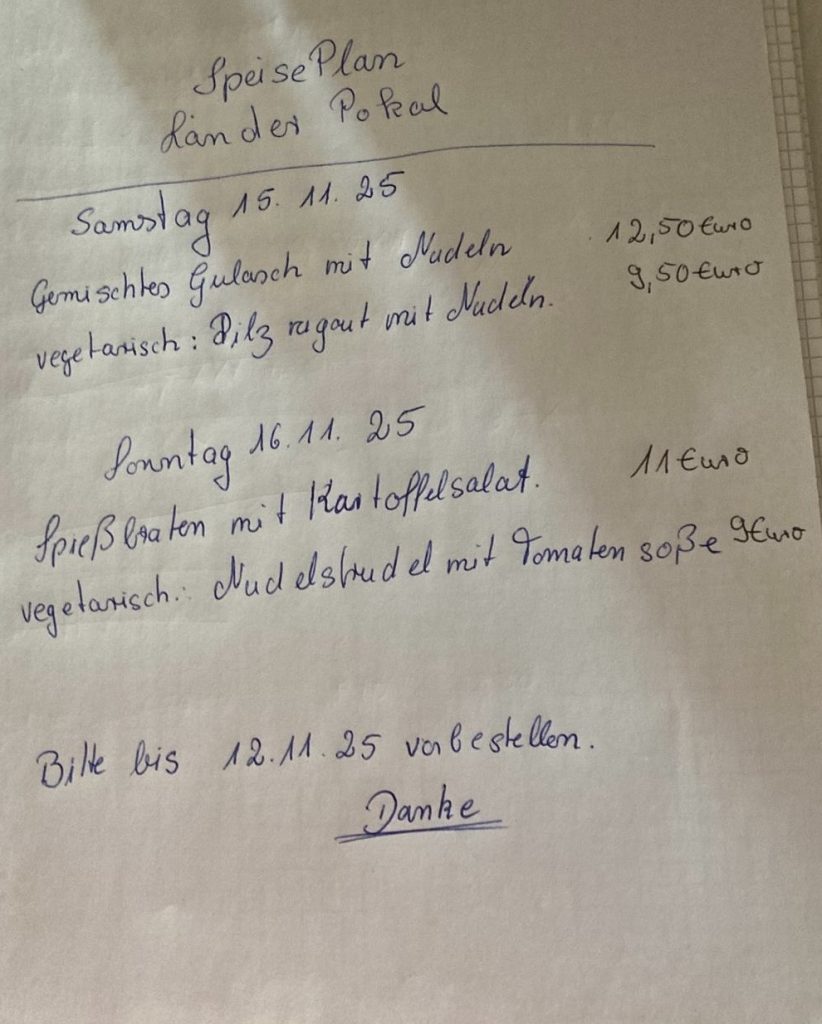 SpeisePlan
Länder Pokal
Samstag 15. 11. 25
Gemischtes Gulasch mit Nudeln 12,50 Euro
vegetarisch: Pilz ragout mit Nudeln. 9,50 Euro
Sonntag 16. 11. 25
Spießbraten mit Kartoffelsalat. 11 Euro
vegetarisch.: Nudelstrudel mit Tomaten soße 9 Euro
Bitte bis 12.11.25 vorbestellen.
Danke